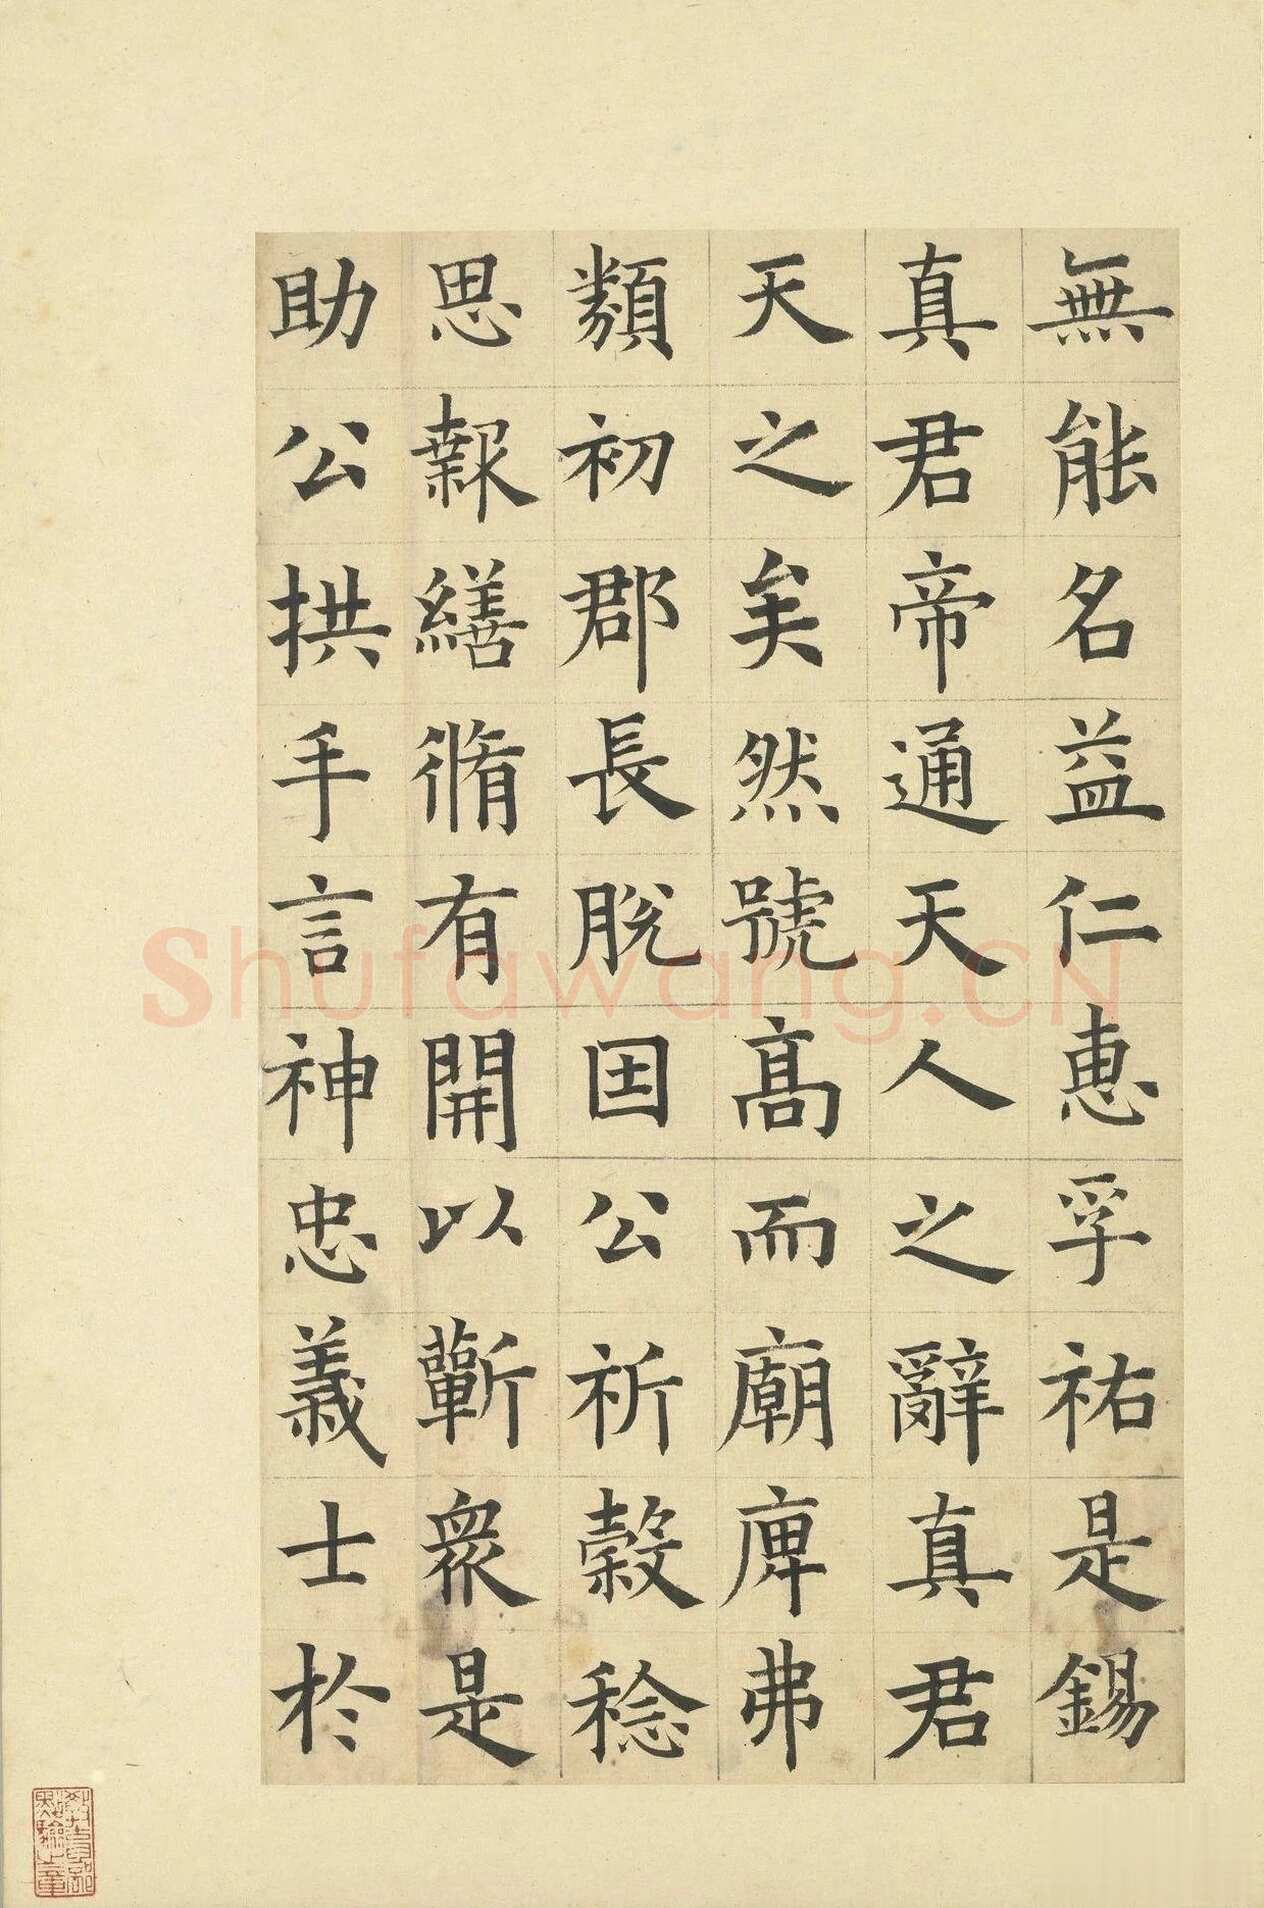 無能名益仁惠孚祐是錫
真君帝通天人之辭真君
天之矣然號髙而廟庳弗
類初郡長脫因公祈糓稔
思報繕脩有開以蘄衆是
助公拱手言神忠義士於
Shufawang.CN
教育部
點驗之章